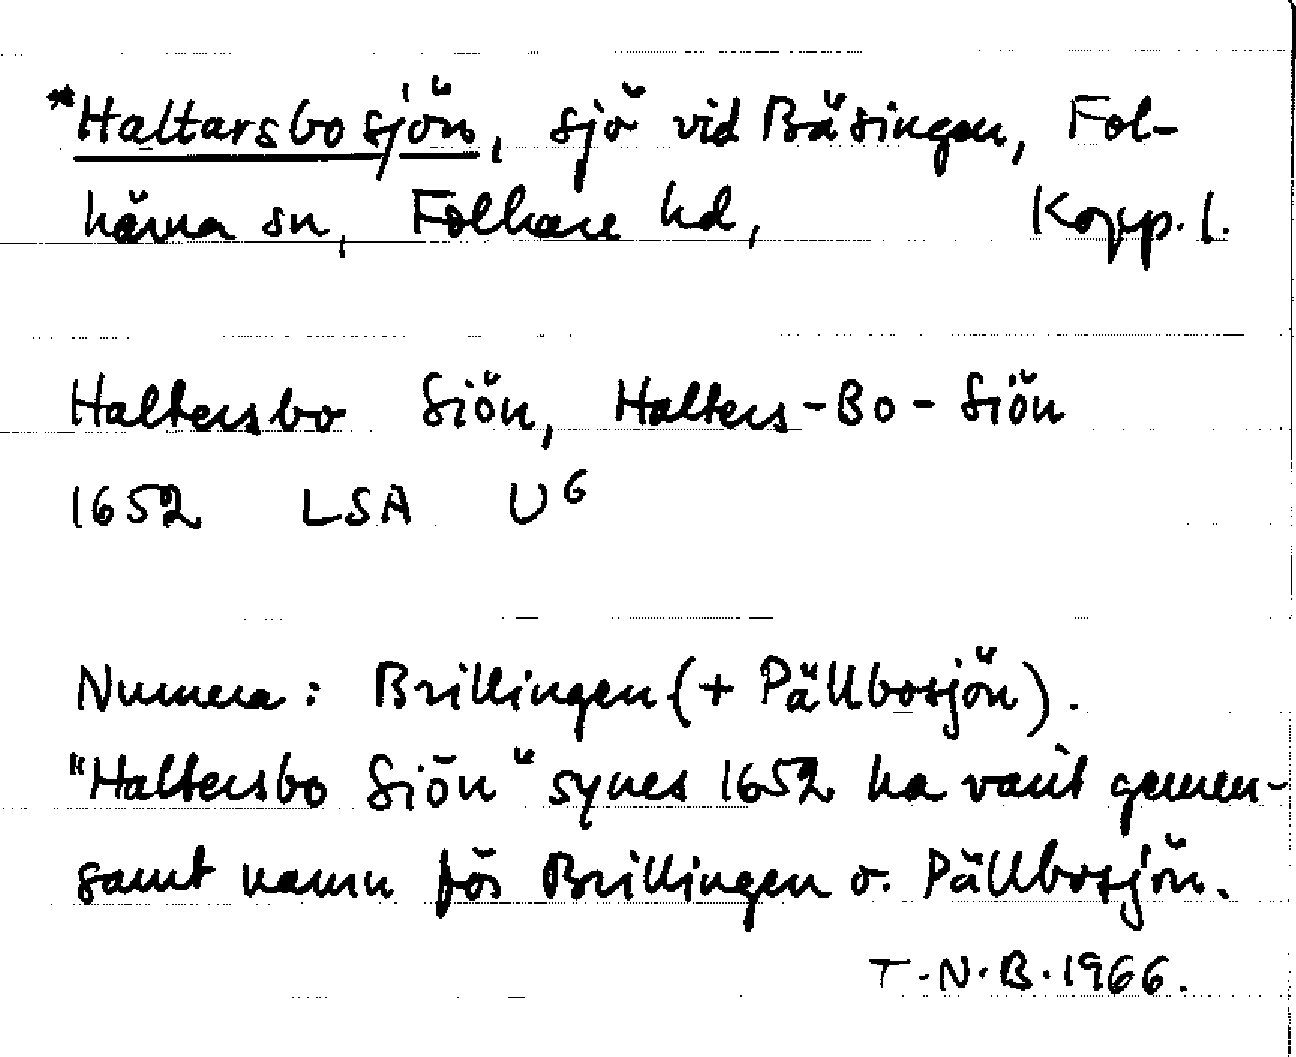 *Haltarsbosjön, sjö vid Bäsingen, Fol-
kärna sn, Folkare hd, Kopp. l.
Haltersbo Siön, Halters-Bo-Siön
1652 LSA U6
Numera: Brillingen (+ Pällbosjön).
"Haltersbo Siön" synes 1652 ha varit gemen-
samt namn för Brillingen o. Pällbosjön.
T.N.B. 1966.